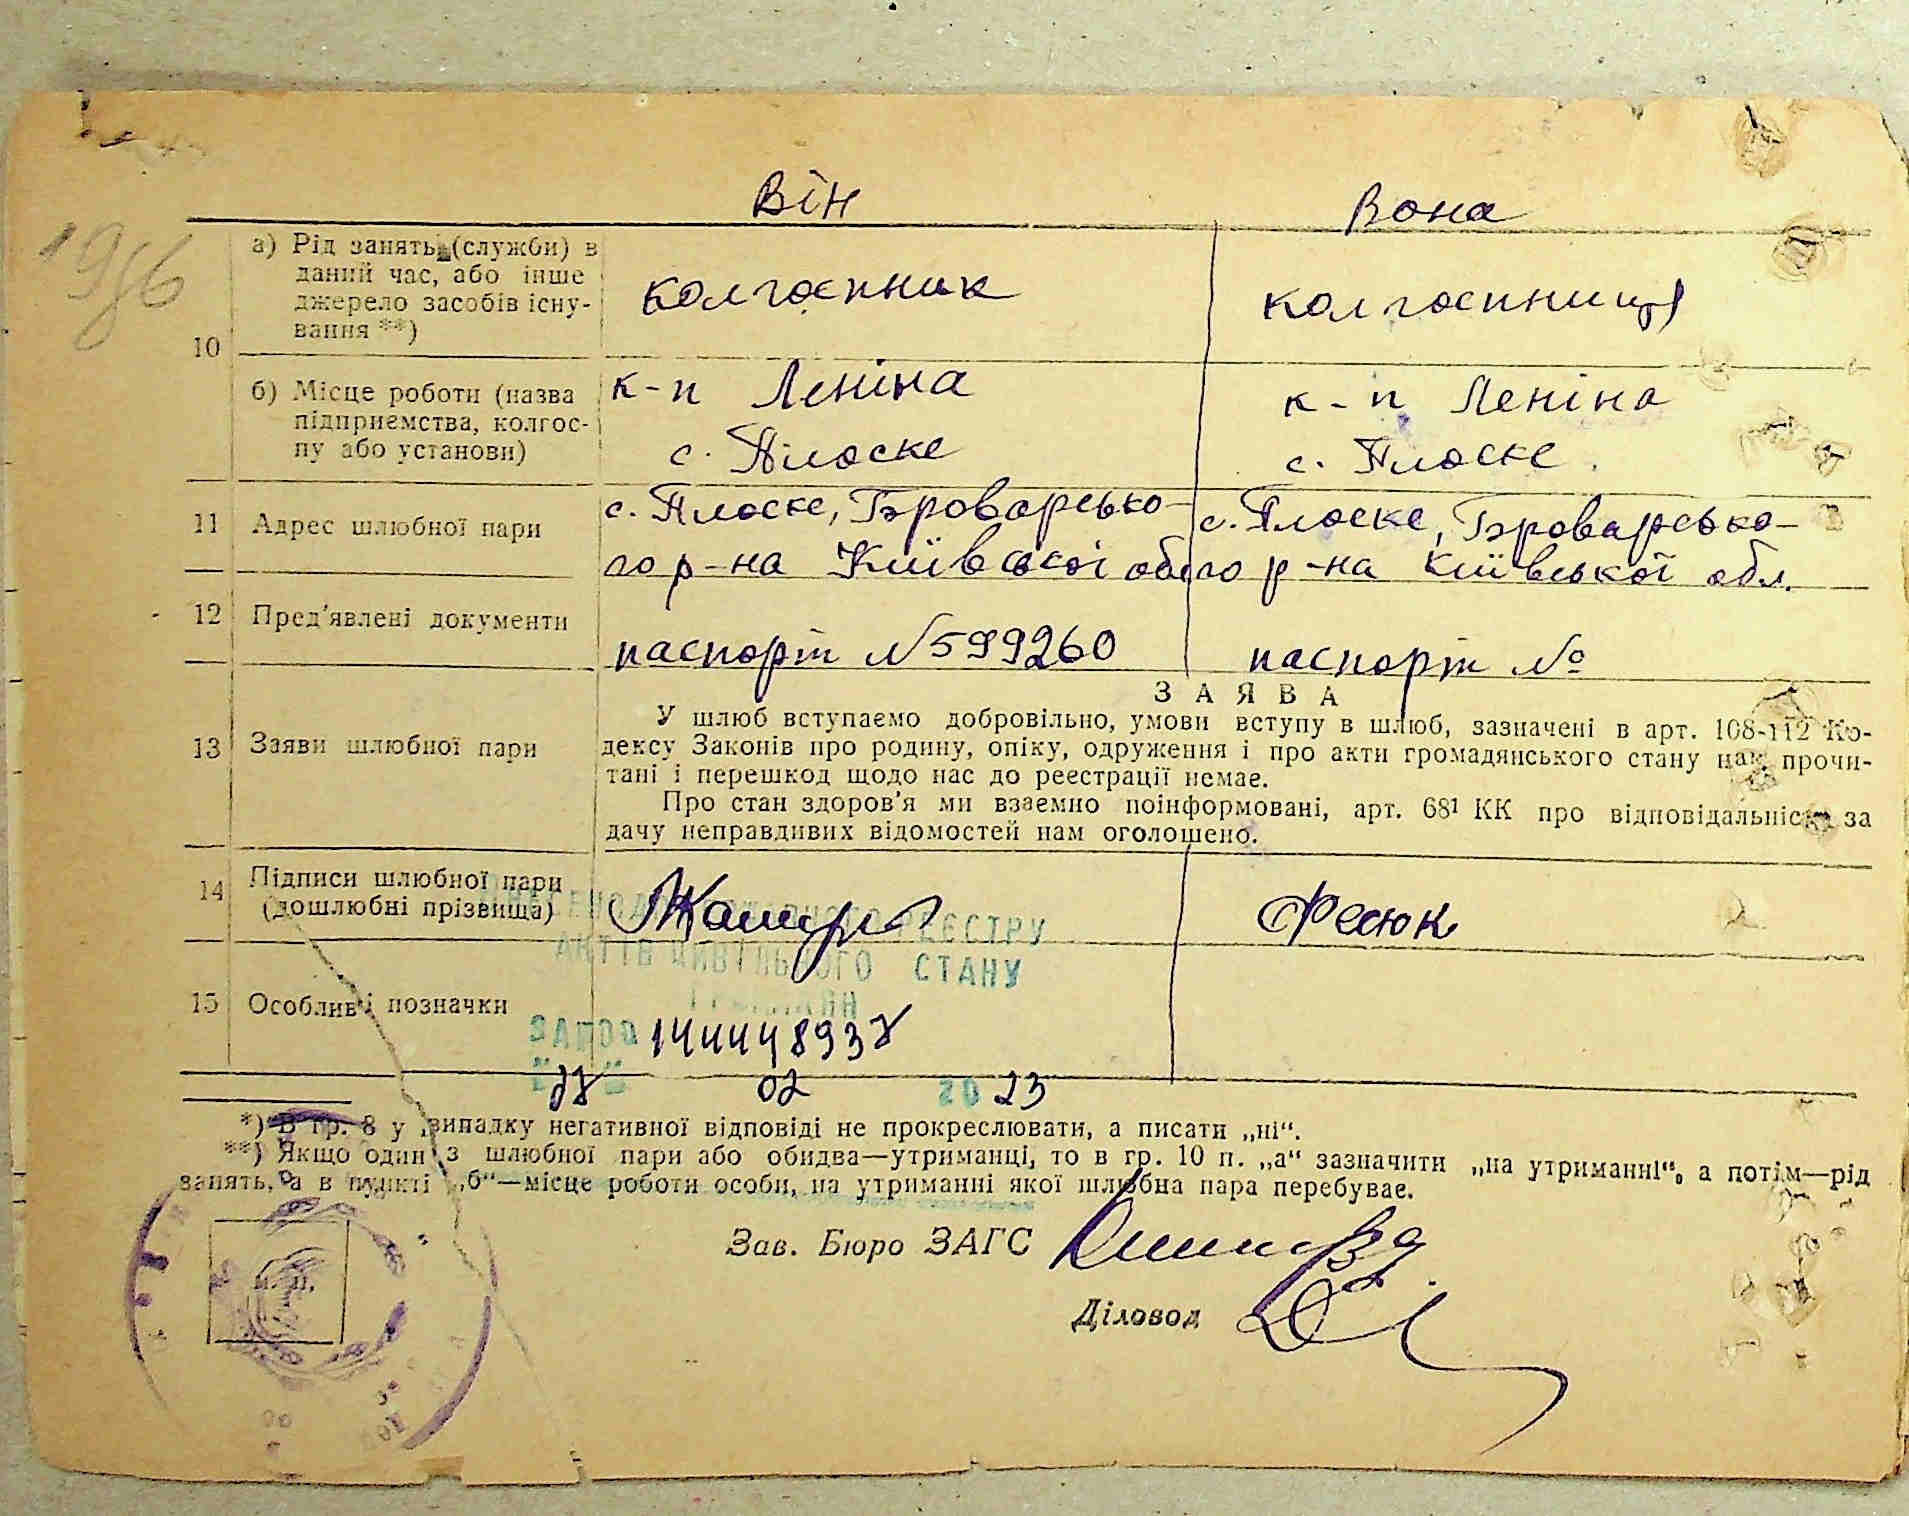 Він Вона
1956
10
а) Рід занять (служби) в даний час, або інше джерело засобів існування **)
колгоспник
колгоспниця
б) Місце роботи (назва підприємства, колгоспу або установи)
к-п Леніна
с. Плоске
к-п Леніна
с. Плоске
11 Адрес шлюбної пари
с. Плоске, Броварсько-
го р-на Київської обл
с. Плоске, Броварсько-
го р-на Київської обл.
12 Пред'явлені документи
паспорт № 599260
паспорт №
13 Заяви шлюбної пари
ЗАЯВА
У шлюб вступаємо добровільно, умови вступу в шлюб, зазначені в арт. 108-112 Ко-
дексу Законів про родину, опіку, одруження і про акти громадянського стану нам прочи-
тані і перешкод щодо нас до реєстрації немає.
Про стан здоров'я ми взаємно поінформовані, арт. 68¹ КК про відповідальність за
дачу неправдивих відомостей нам оголошено.
14 Підписи шлюбної пари
(дошлюбні прізвища)
Фесюк
РЕЄСТРУ
АКТІВ ЦИВІЛЬНОГО СТАНУ
ГРОМАДЯН
15 Особливі позначки
02 20 23
*) В гр. 8 у випадку негативної відповіді не прокреслювати, а писати „ні“.
**) Якщо один з шлюбної пари або обидва—утриманці, то в гр. 10 п. „а“ зазначити „на утриманні“, а потім—рід
занять, а в пункті „б“—місце роботи особи, на утриманні якої шлюбна пара перебуває.
Зав. Бюро ЗАГС
м. п.
Діловод